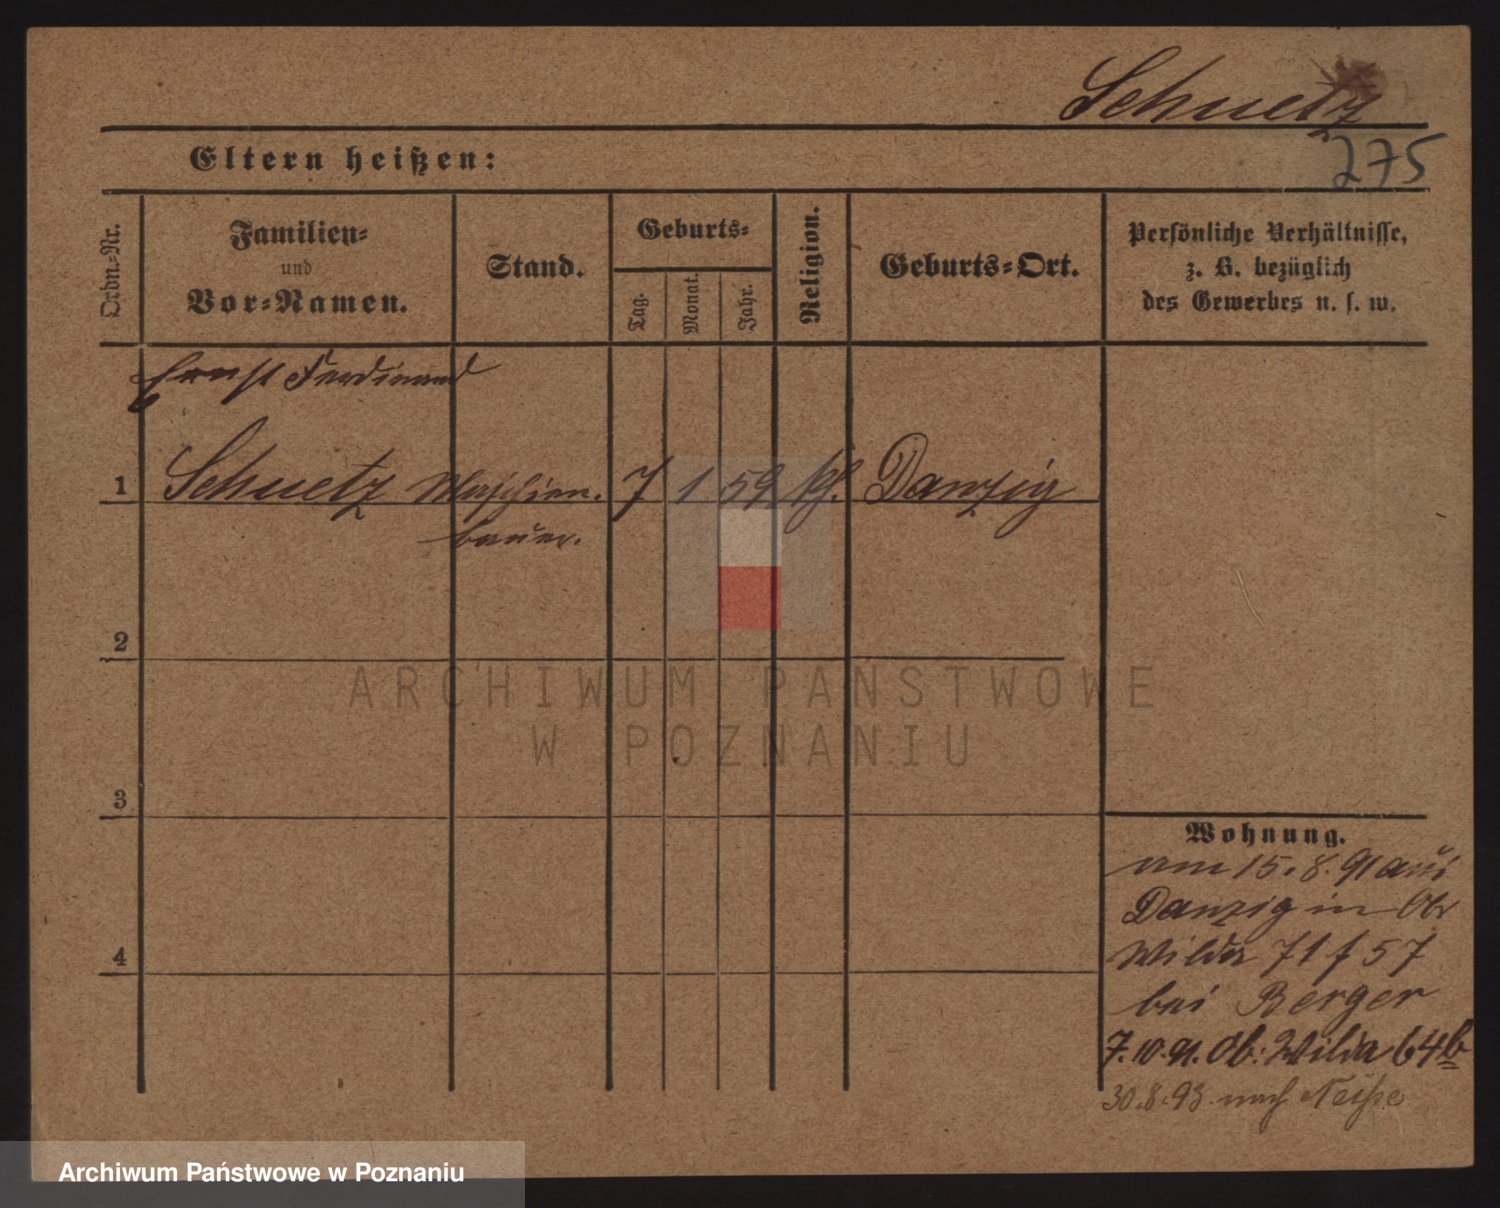 Schuetz
Eltern heißen:
275
Ordn.-Nr.
Familien-
und
Vor-Namen.
Stand.
Geburts-
Tag.
Monat.
Jahr.
Religion.
Geburts-Ort.
Persönliche Verhältnisse,
z. B. bezüglich
des Gewerbes u. s. w.
Ernst Ferdinand
1 Schuetz Maschien. 7 1 59 kf. Danzig
bauer.
2
ARCHIWUM PAŃSTWOWE
W POZNANIU
3
Wohnung.
am 15.8.91 aus
Danzig in Ob
4
Wilda 71 f 57
bei Berger
7.10.91. Ob: Wilda 64b
30.8.93 nach Neisse
Archiwum Państwowe w Poznaniu